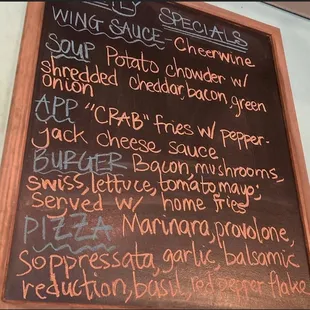 SPECIALS
WING SAUCE - Cheerwine
SOUP Potato chowder w/
shredded cheddar, bacon, green
onion
APP "CRAB" fries w/ pepper-
jack cheese sauce
BURGER Bacon, mushrooms,
swiss, lettuce, tomato, mayo;
Served w/ home fries
PIZZA Marinara, provolone,
soppressata, garlic, balsamic
reduction, basil, red pepper flake